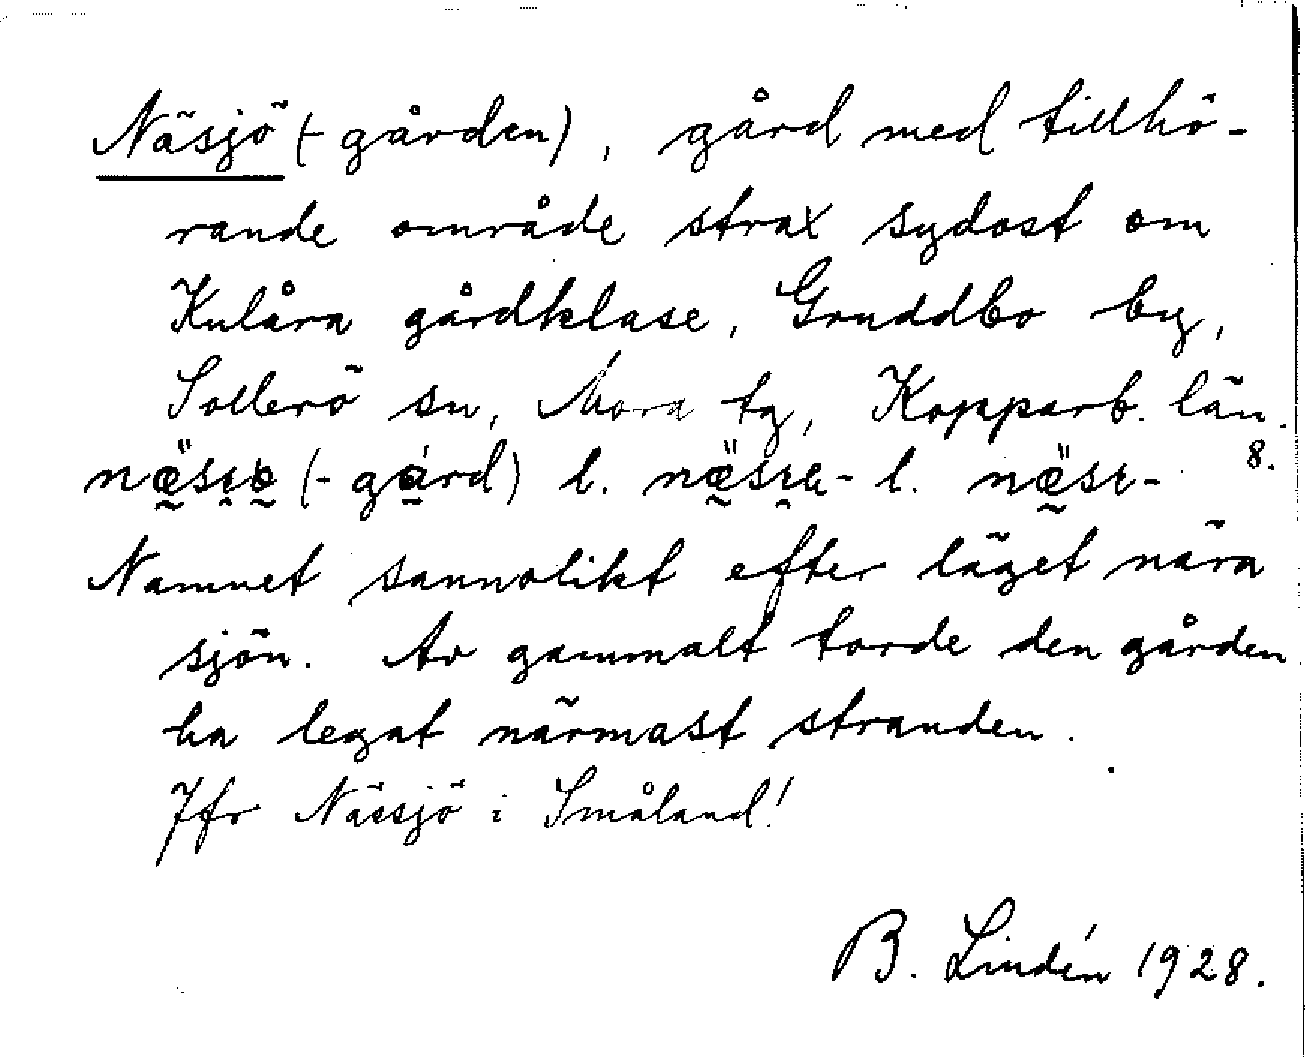 Näsjö (-gården), gård med tillhö-
rande område strax sydost om
Kulåra gårdklase, Gruddbo by,
Sollerö sn, Mora tg, Kopparb. län.
8.
(-gård) l. l.
Namnet sannolikt efter läget nära
sjön. Av gammalt torde den gården
ha legat närmast stranden.
Jfr Nässjö i Småland!
B. Lindén 1928.